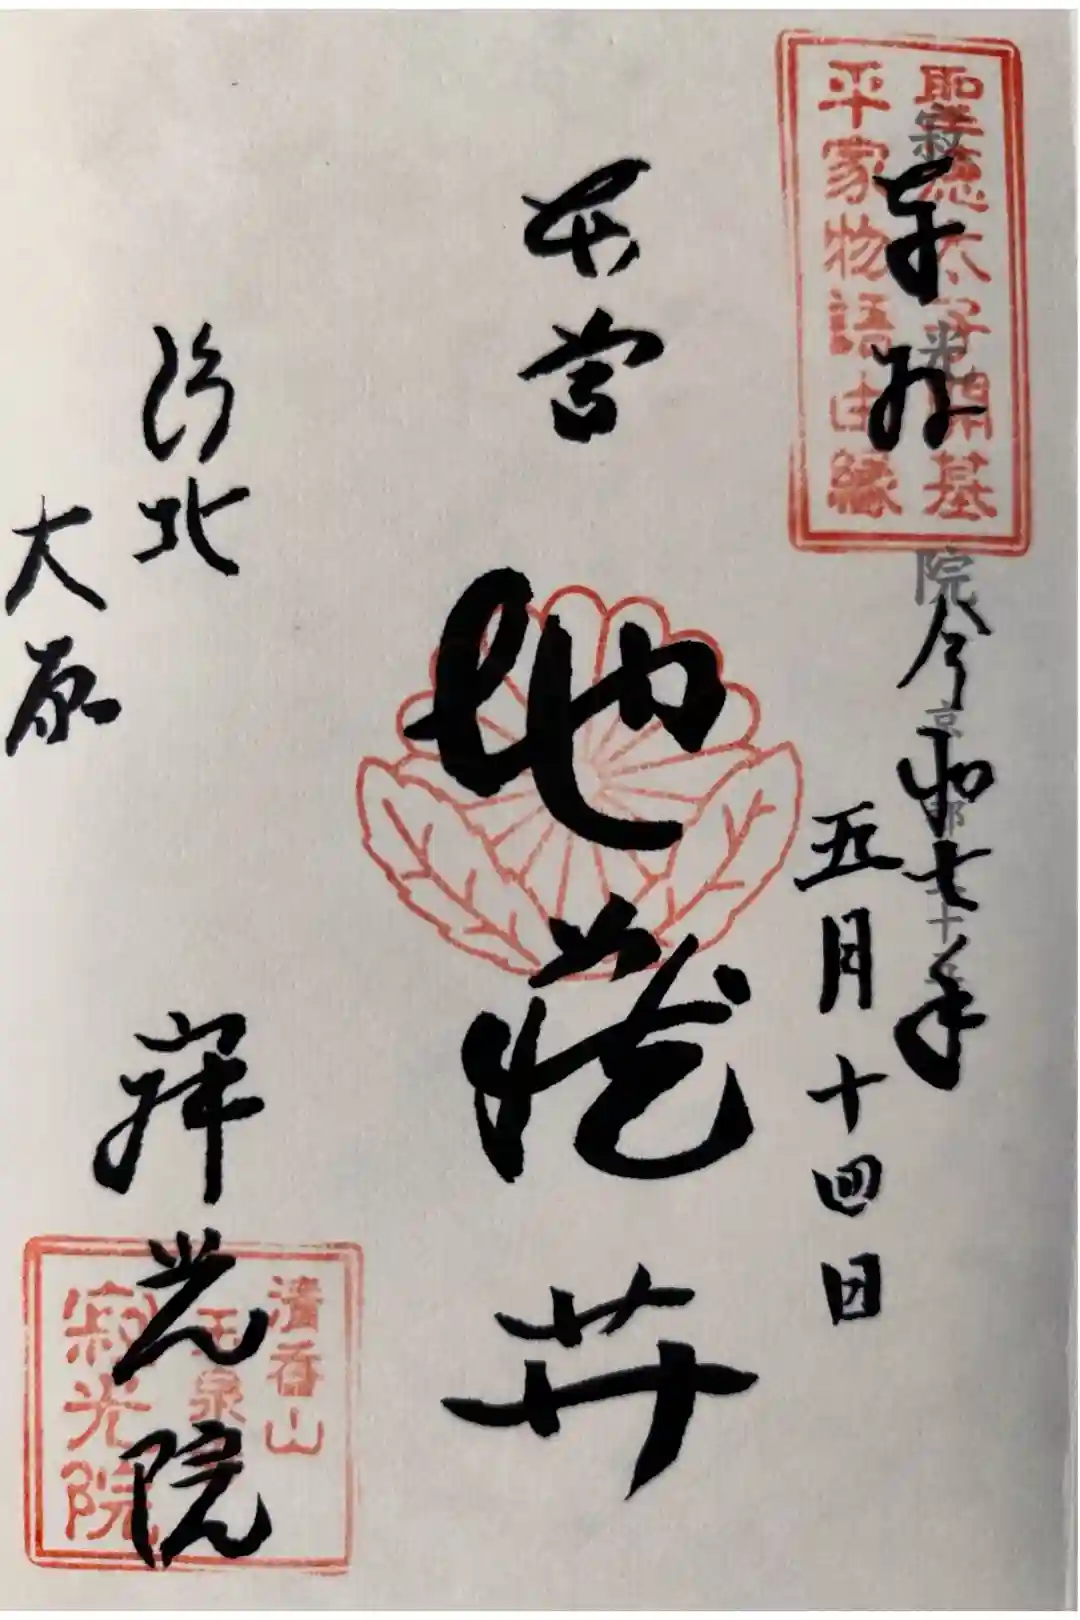 聖徳太子開基
平家物語由縁
奉拝
令和七年
五月十四日
本尊
地蔵䒑
洛北
大原
寂光院
清香山
玉泉寺
寂光院